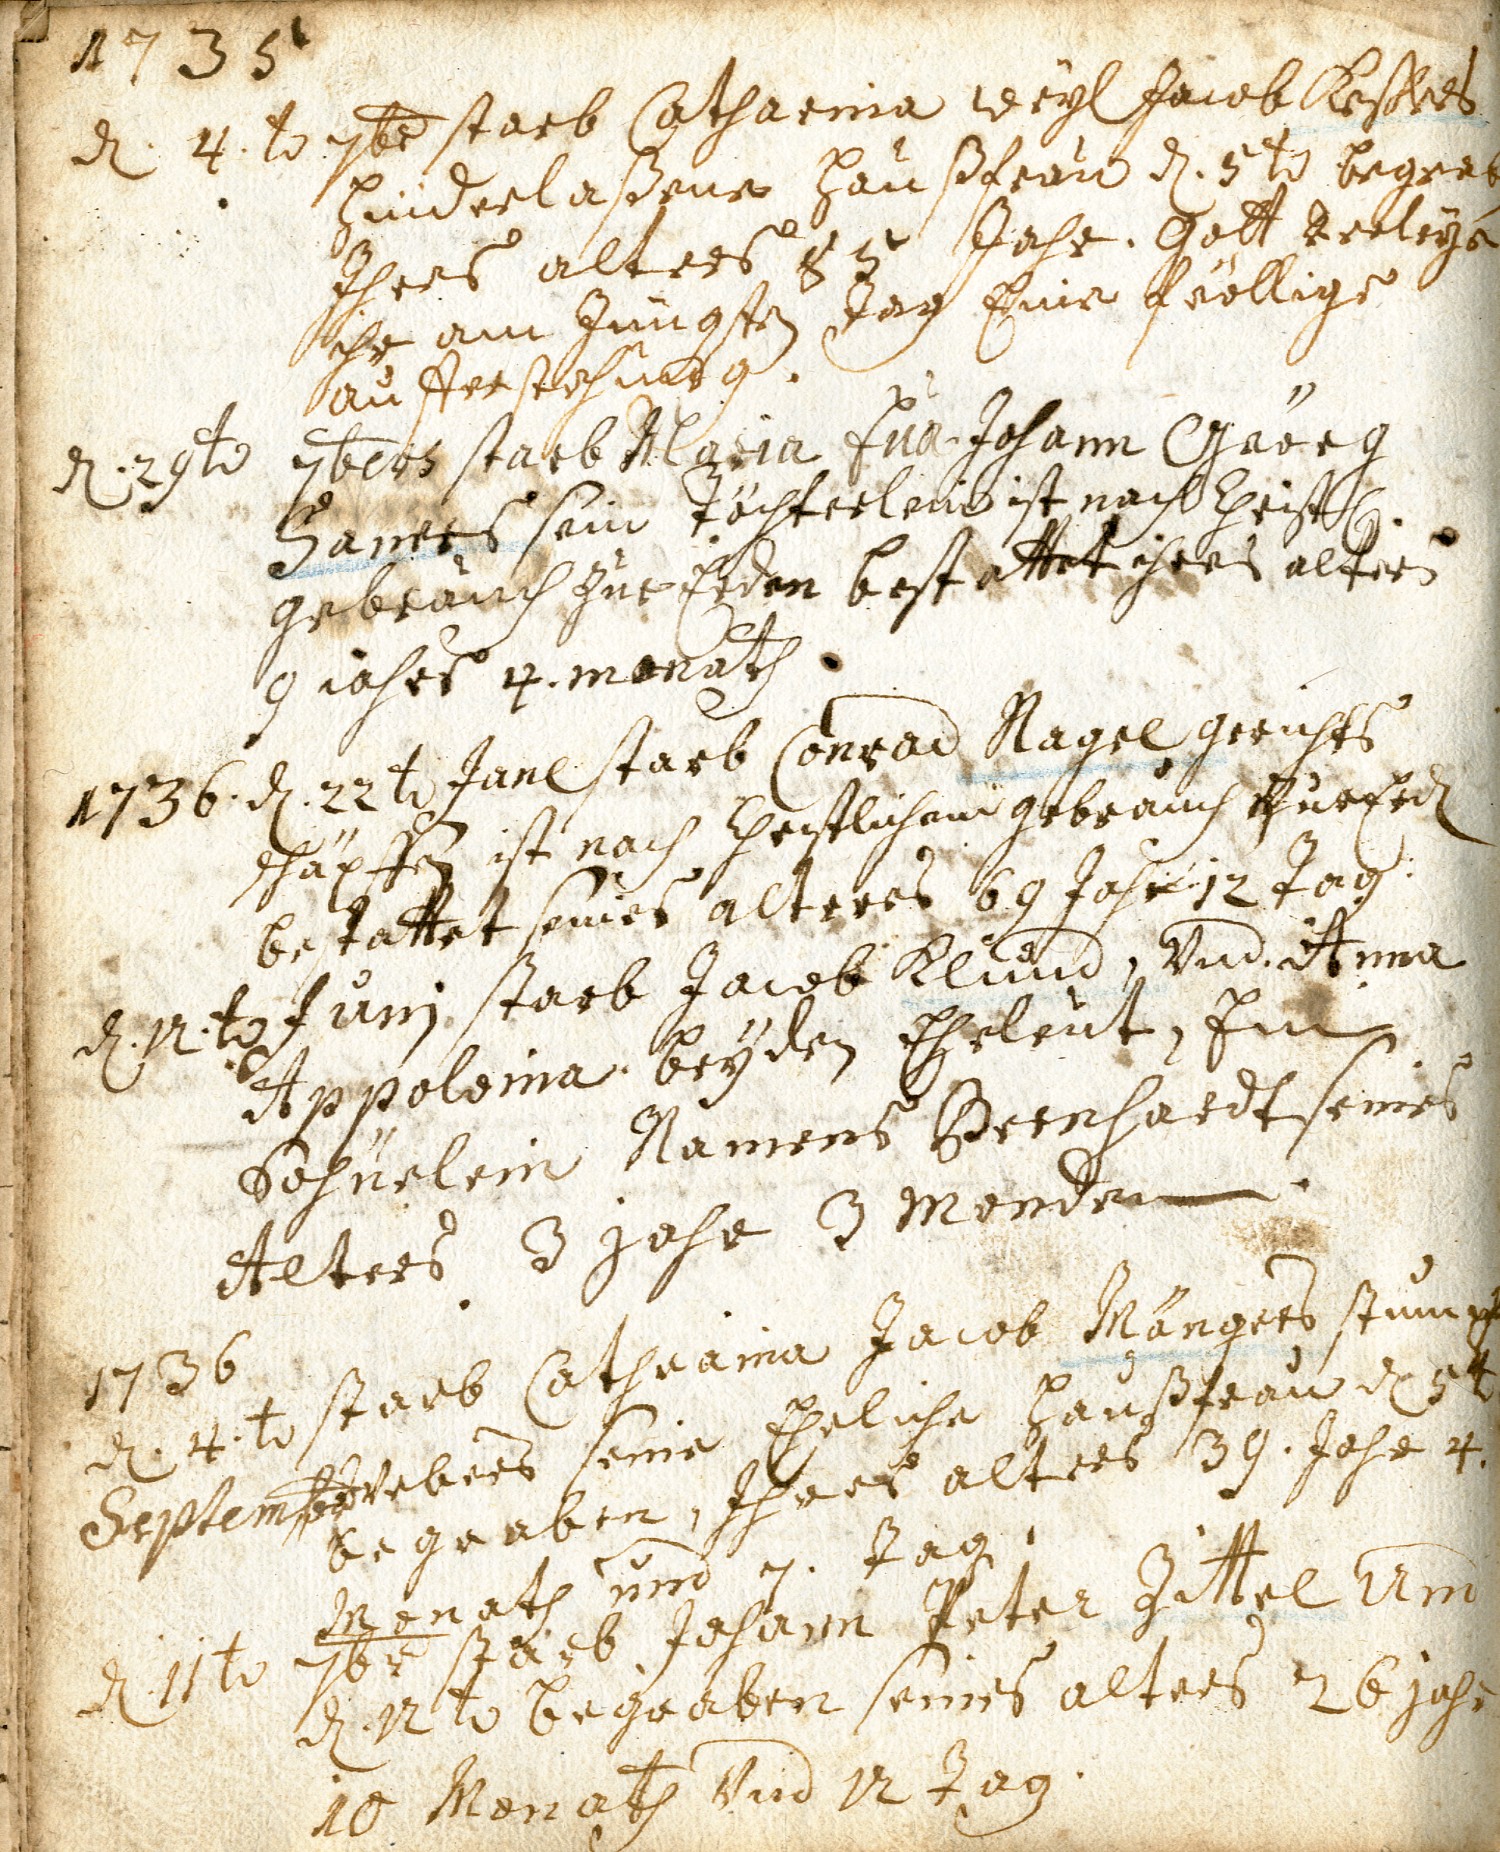 1735
d. 4.t 7br starb Catharina weyl Jacob Keßlers
hinderlaßene haußfrau d. 5t begrab
Ihres alters 85 Jahr. Gott verleyhe
ihr am Jüngsten Tag Eine fröliche
aufferstehung.
d. 29t 7bers starb Maria Eva Johann Geörg
sein Töchterlein ist nach Christl.
gebrauch zur Erden bestattet ihres alters
9 iahrs 4. monath.
1736. d. 22t starb Conrad Nagel gerichts
schäpffen ist nach christlichem gebrauch zur Erd
bestattet seines alteres 69 Jahr 12 Tag.
d. 12.t Junj starb Jacob Klund, Vnd. Anna
Appolonia. beyden Eheleut, Ein
Söhnelein Namens Bernhardt seines
Alters 3 jahr 3 Monden.
1736
d. 4.t starb Cathraina Jacob Mängers
September seine Eheliche haußfrau d 5t
begraben, Ihres alters 39. Jahr 4.
Monath und 7. Tag.
d. 11t 7br starb Johann Peter Zittel Und
d. 12t begraben seines alters 26 jahr
10 Monath Vnd 12 Tag.